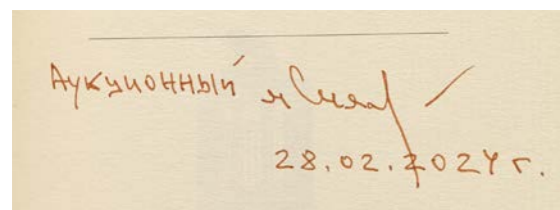 Аукционный
28.02.2024 г.